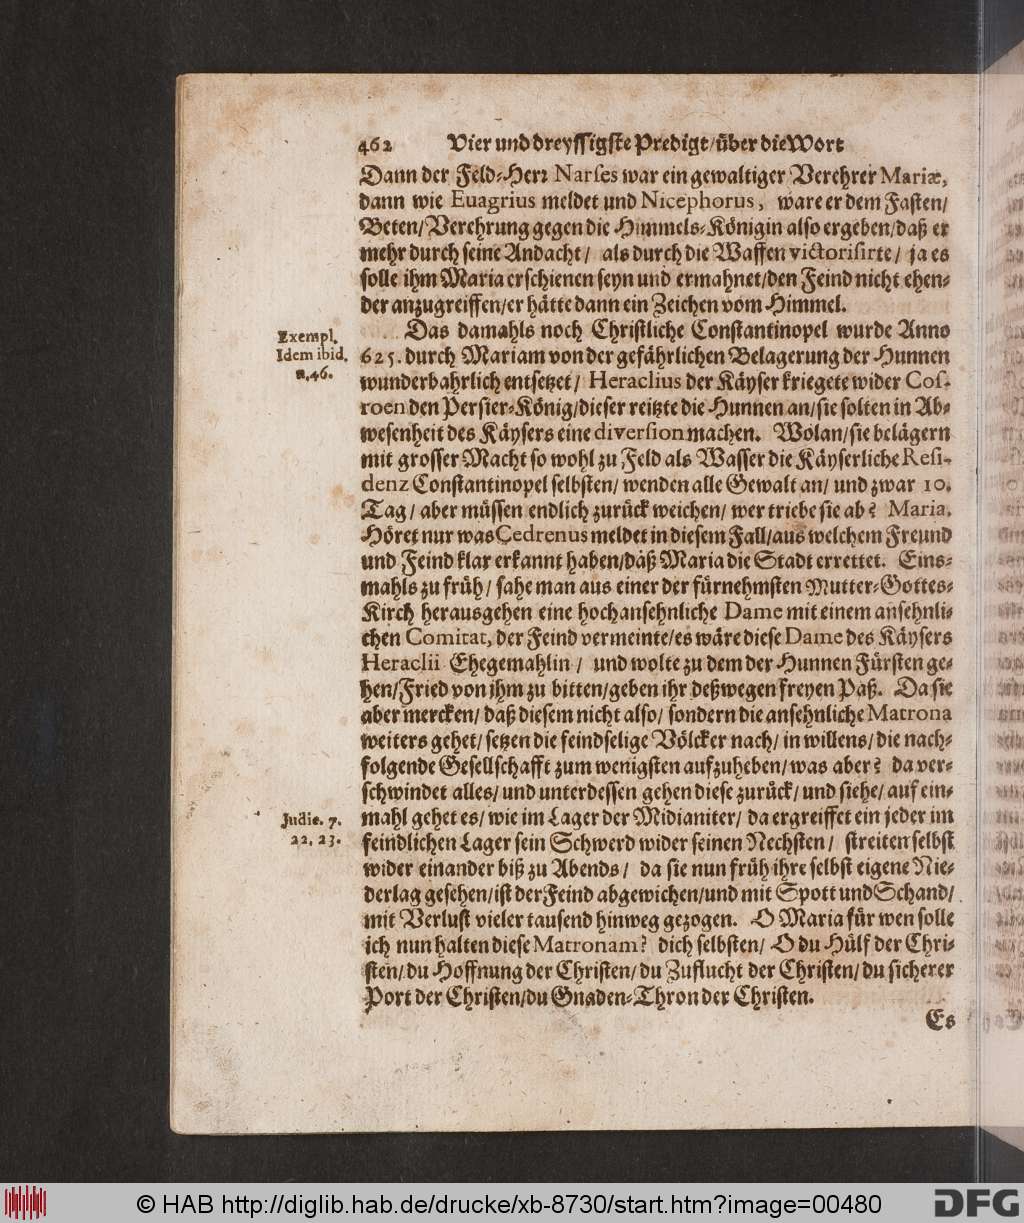 462 Vier und dreyssigste Predigt/über die Wort
Dann der Feld-Herr Narses war ein gewaltiger Verehrer Mariæ,
dann wie Euagrius meldet und Nicephorus, ware er dem Fasten/
Beten/Verehrung gegen die Himmels-Königin also ergeben/daß er
mehr durch seine Andacht/ als durch die Waffen victorisirte/ ja es
solle ihm Maria erschienen seyn und ermahnet/den Feind nicht ehen-
der anzugreiffen/er hätte dann ein Zeichen vom Himmel.
Das damahls noch Christliche Constantinopel wurde Anno
Exempl.
Idem ibid.
n. 46.
625. durch Mariam von der gefährlichen Belagerung der Hunnen
wunderbahrlich entsetzet/ Heraclius der Käyser kriegete wider Cos-
roen den Persier-König/dieser reitzte die Hunnen an/sie solten in Ab-
wesenheit des Käysers eine diversion machen. Wolan/sie belägern
mit grosser Macht so wohl zu Feld als Wasser die Käyserliche Resi-
denz Constantinopel selbsten/ wenden alle Gewalt an/ und zwar 10.
Tag/ aber müssen endlich zurück weichen/ wer triebe sie ab? Maria.
Höret nur was Cedrenus meldet in diesem Fall/aus welchem Freund
und Feind klar erkannt haben/daß Maria die Stadt errettet. Eins-
mahls zu früh/ sahe man aus einer der fürnehmsten Mutter-Gottes-
Kirch herausgehen eine hochansehnliche Dame mit einem ansehnli-
chen Comitat, der Feind vermeinte/es wäre diese Dame des Käysers
Heraclii Ehegemahlin/ und wolte zu dem der Hunnen Fürsten ge-
hen/Fried von ihm zu bitten/geben ihr deßwegen freyen Paß. Da sie
aber mercken/ daß diesem nicht also/ sondern die ansehnliche Matrona
weiters gehet/ setzen die feindselige Völcker nach/ in willens/ die nach-
folgende Gesellschafft zum wenigsten aufzuheben/ was aber? da ver-
schwindet alles/ und unterdessen gehen diese zurück/ und siehe/ auf ein-
Judic. 7.
22. 23.
mahl gehet es/ wie im Lager der Midianiter/ da ergreiffet ein jeder im
feindlichen Lager sein Schwerd wider seinen Nechsten/ streiten selbst
wider einander biß zu Abends/ da sie nun früh ihre selbst eigene Nie-
derlag gesehen/ist der Feind abgewichen/und mit Spott und Schand/
mit Verlust vieler tausend hinweg gezogen. O Maria für wen solle
ich nun halten diese Matronam? dich selbsten/ O du Hülf der Chri-
sten/du Hoffnung der Christen/du Zuflucht der Christen/du sicherer
Port der Christen/du Gnaden-Thron der Christen.
Es
© HAB http://diglib.hab.de/drucke/xb-8730/start.htm?image=00480
DFG